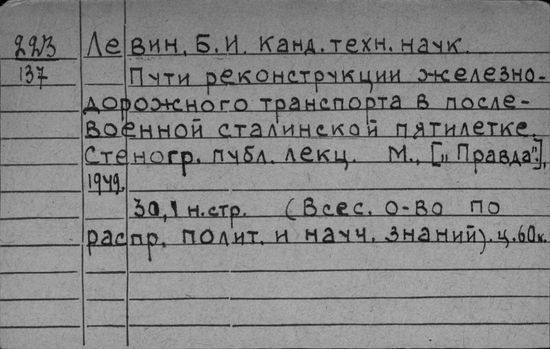 223 Левин, Б.И. Канд. техн. наук.
137 Пути реконструкции железно-
дорожного транспорта в после-
военной сталинской пятилетке.
Стеногр. публ. лекц. М., [„Правда"],
1949.
30,1 н.стр. (Всес. о-во по
распр. полит. и науч. знаний). ц. 60к.